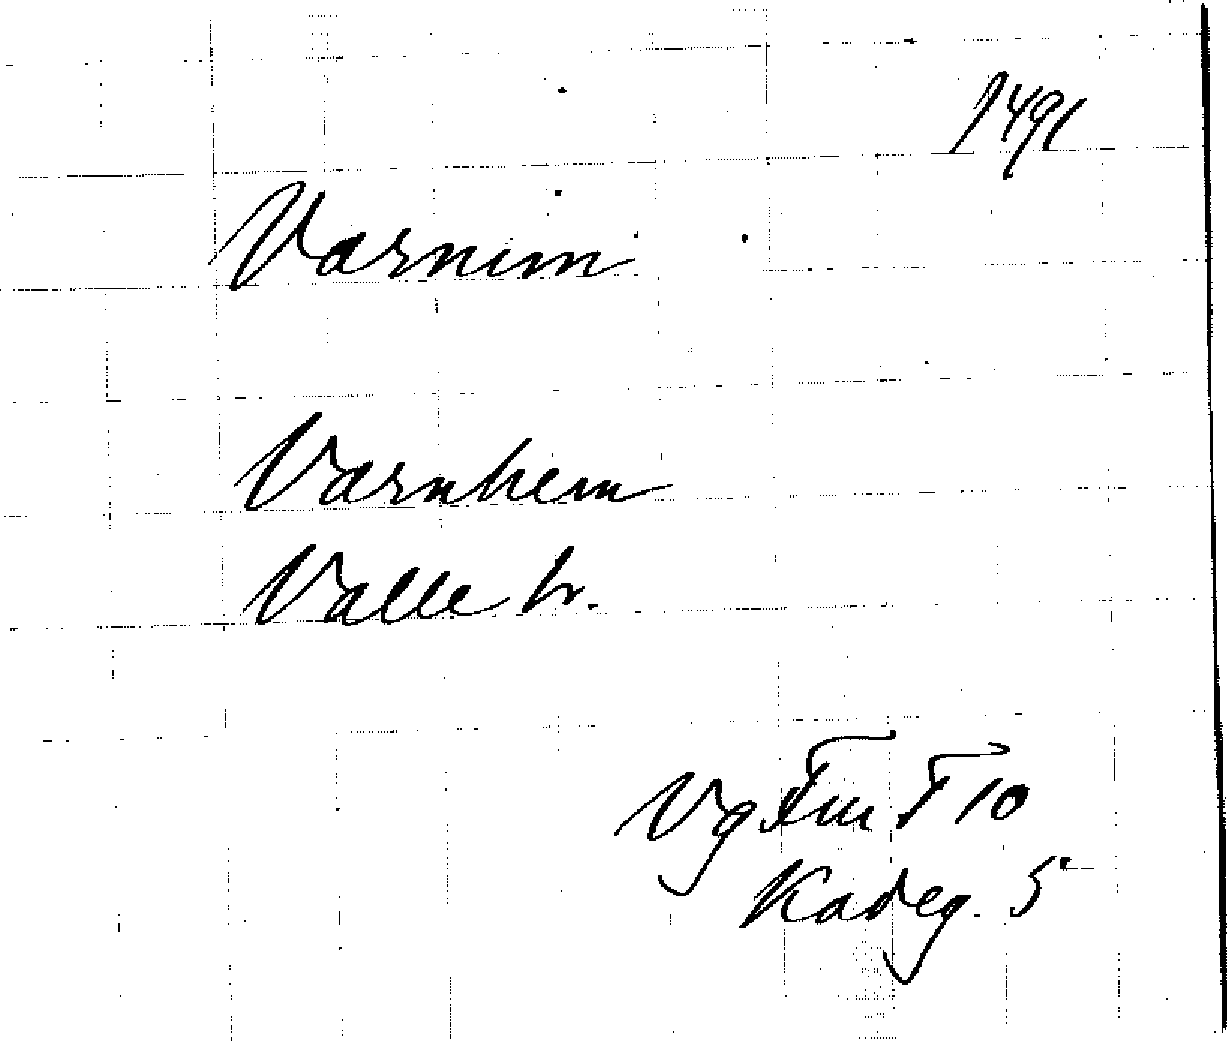 1491
Varnem
Varnhem
Valle h.
Vg Fm T 10
Kadeg. 5